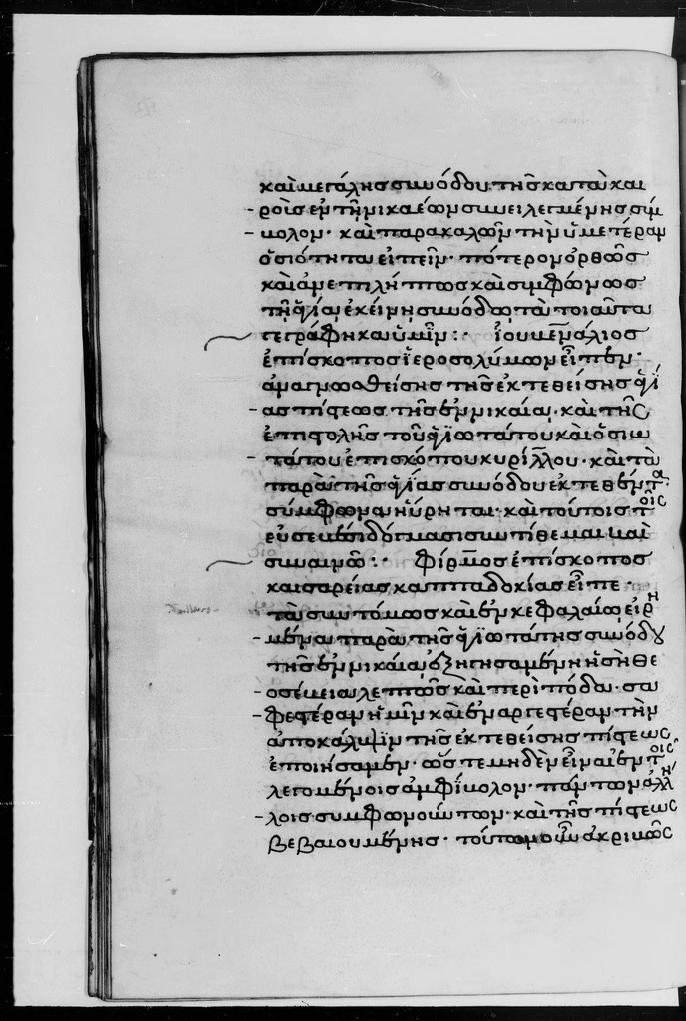 καὶ μεγάλης συνόδου τῆς κατὰ και
ροὺς ἐν τῆ νικαέων συνειλεγμένης σύμ
βολον· καὶ παρακαλῶν τὴν ὑμετέραν
ὁσιότητα εἰπεῖν· πότερον ὀρθῶς
καὶ ἀνεπιλήπτως καὶ συμφώνως
τῆ ἁγίᾳ ἐκείνη συνόδω τὰ τοιαῦτα
γεγράφηκα ὑμῖν:· ἰουβενάλιος
ἐπίσκοπος ἱεροσολύμων εἶπεν·
ἀναγνωσθείσης τῆς ἐκτεθείσης ἁγί
ας πίστεως τῆς ἐν νικαίᾳ· καὶ τῆς
ἐπιστολῆς τοῦ ἁγιωτάτου καὶ ὁσιω
τάτου ἐπισκόπου κυρίλλου· καὶ τὰ
παρὰ τῆς ἁγίας συνόδου ἐκτεθέντα·
σύμφωνα ηὕρηται· καὶ τούτοις τοῖς
εὐσεβέσι δόγμασι συντίθεμαι καὶ
συναινῶ:· φίρμος ἐπίσκοπος
καισαρείας καππαδοκίας εἶπε·
τὰ συντόμως καὶ ἐν κεφαλαίω εἰρη
μένα παρὰ τῆς ἁγιωτάτης συνόδου
τῆς ἐν νικαίᾳ ἐξηγησαμένη ἡ σὴ θε
οσέβεια λεπτῶς καὶ περὶ πόδα· σα
φεστέραν ἡμῖν καὶ ἐναργεστέραν τὴν
ἀποκάλυψιν τῆς ἐκτεθείσης πίστεως
ἐποιήσαμεν· ὥστε μηδὲν εἶναι ἐν τοῖς
λεγομένοις ἀμφίβολον· πάντων ἀλλή
λοις συμφωνούντων· καὶ τῆς πίστεως
βεβαιουμένης· τούτων οὖν ἀκριβῶς